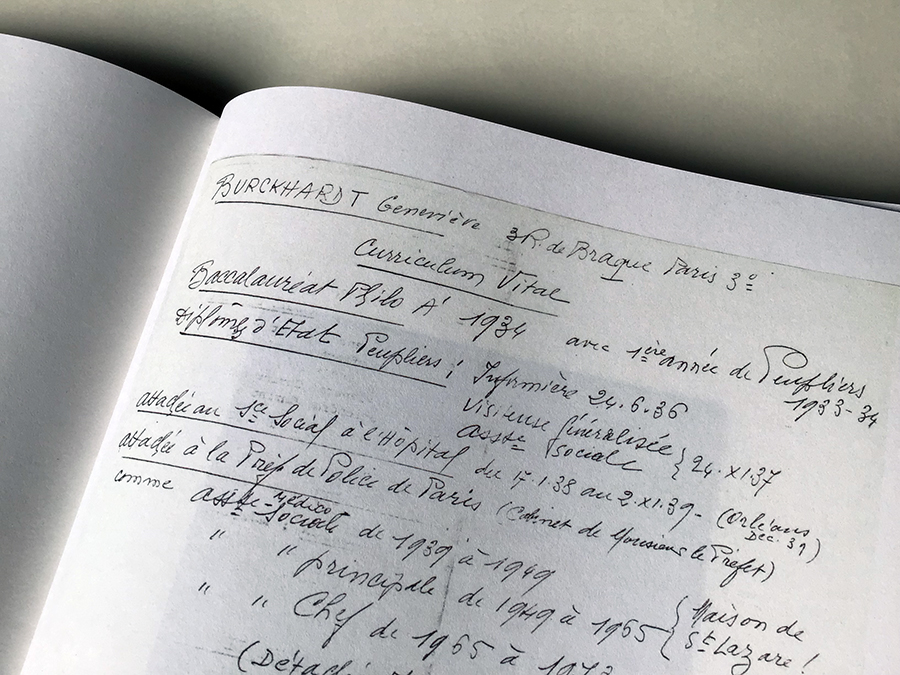 BURCKHARDT Geneviève 3 R. de Braque Paris 3º
Curriculum Vitae
Baccalauréat Philo A' 1934 avec 1ère année de Peupliers 1933-34
Diplômes d'Etat Peupliers : Infirmière 24.6.36
Visiteuse
Asste Sociale } 24.XI.37
attachée au Sce Social à l'Hôpital du 17.1.38 au 2.XI.39 - (Orléans Déc. 39)
attachée à la Préf. de Police de Paris (Cabinet de Monsieur le Préfet)
comme Asste médico Sociale de 1939 à 1949
" " principale de 1949 à 1965 { Maison de St Lazare !
" " Chef de 1965 à
(Détachée